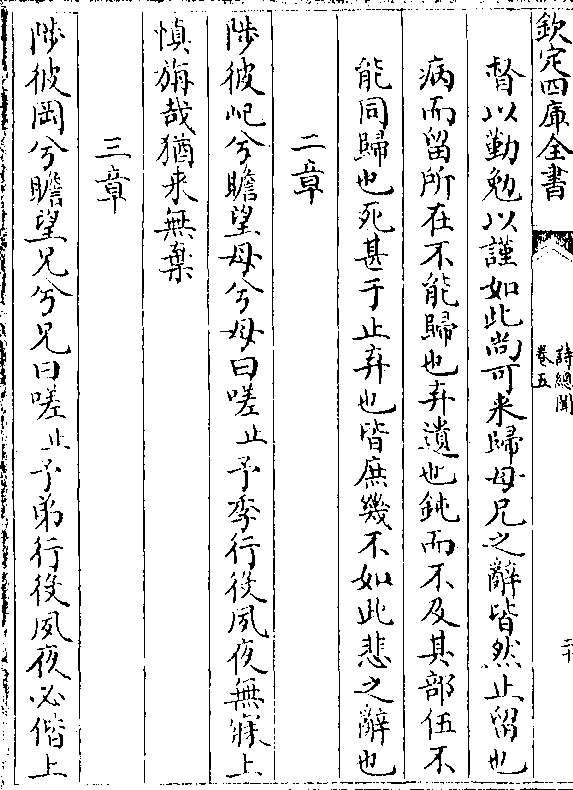 欽定四庫全書
詩總聞
卷五
二十
督以勤勉以謹如此尚可来歸母兄之辭皆然止留也
病而留所在不能歸也弃遺也鈍而不及其部伍不
能同歸也死甚于止弃也皆庶幾不如此悲之辭也
二章
陟彼屺兮瞻望母兮母曰嗟止予季行役夙夜無寐上
慎旃哉猶来無棄
三章
陟彼岡兮瞻望兄兮兄曰嗟止予弟行役夙夜必偕上